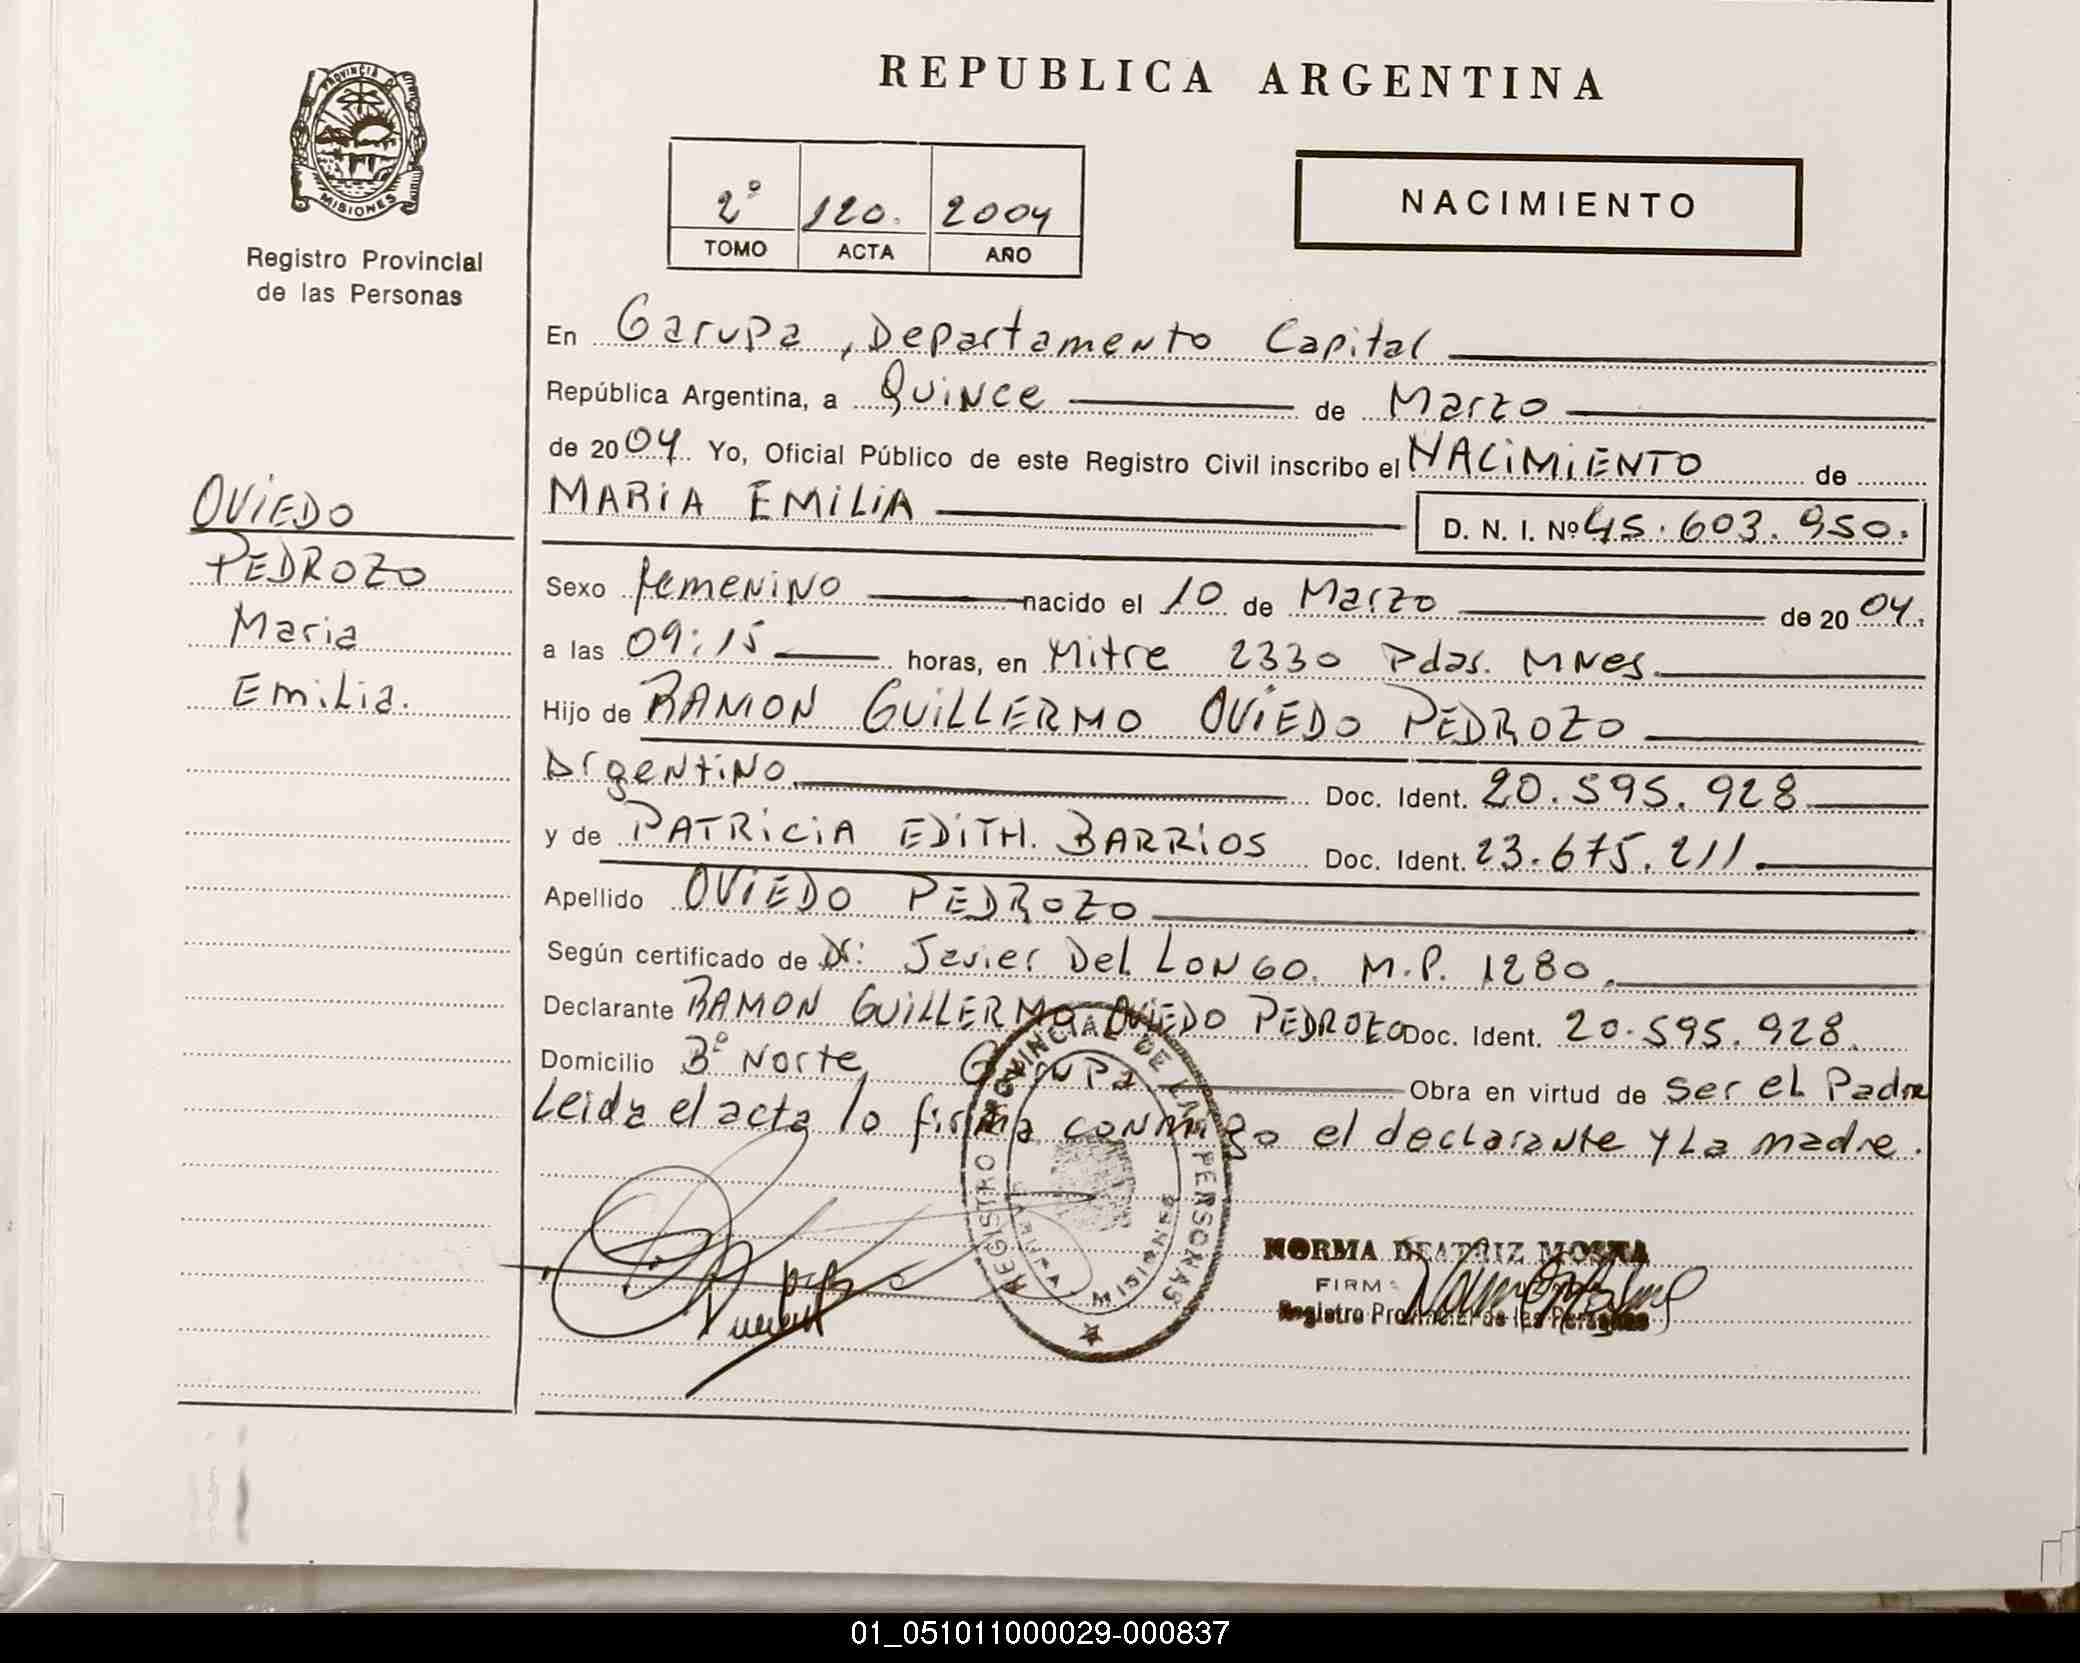 REPUBLICA ARGENTINA
PROVINCIA DE
MISIONES
Registro Provincial
de las Personas
2º 120. 2004
TOMO ACTA AÑO
NACIMIENTO
OVIEDO
PEDROZO
Maria
Emilia.
En Garupa, Departamento Capital
República Argentina, a Quince de Marzo
de 2004. Yo, Oficial Público de este Registro Civil inscribo el NACIMIENTO de
MARIA EMILIA D. N. I. Nº 45.603.950.
Sexo femenino nacido el 10 de Marzo de 2004.
a las 09:15 horas, en Mitre 2330 Pdas. MNes.
Hijo de RAMON GUILLERMO OVIEDO PEDROZO
Argentino Doc. Ident. 20.595.928
y de PATRICIA EDITH. BARRIOS Doc. Ident. 23.675.211.
Apellido OVIEDO PEDROZO
Según certificado de Dr: Javier Del LONGO. M.P. 1280.
Declarante RAMON GUILLERMO OVIEDO PEDROZO Doc. Ident. 20.595.928.
Domicilio Bº Norte, Garupa Obra en virtud de ser el Padre
Leida el acta lo firma conmigo el declarante y La madre.
REGISTRO PROVINCIAL DE LAS PERSONAS
MISIONES
NORMA BEATRIZ
FIRMA
Registro Provincial de las Personas
01_051011000029-000837